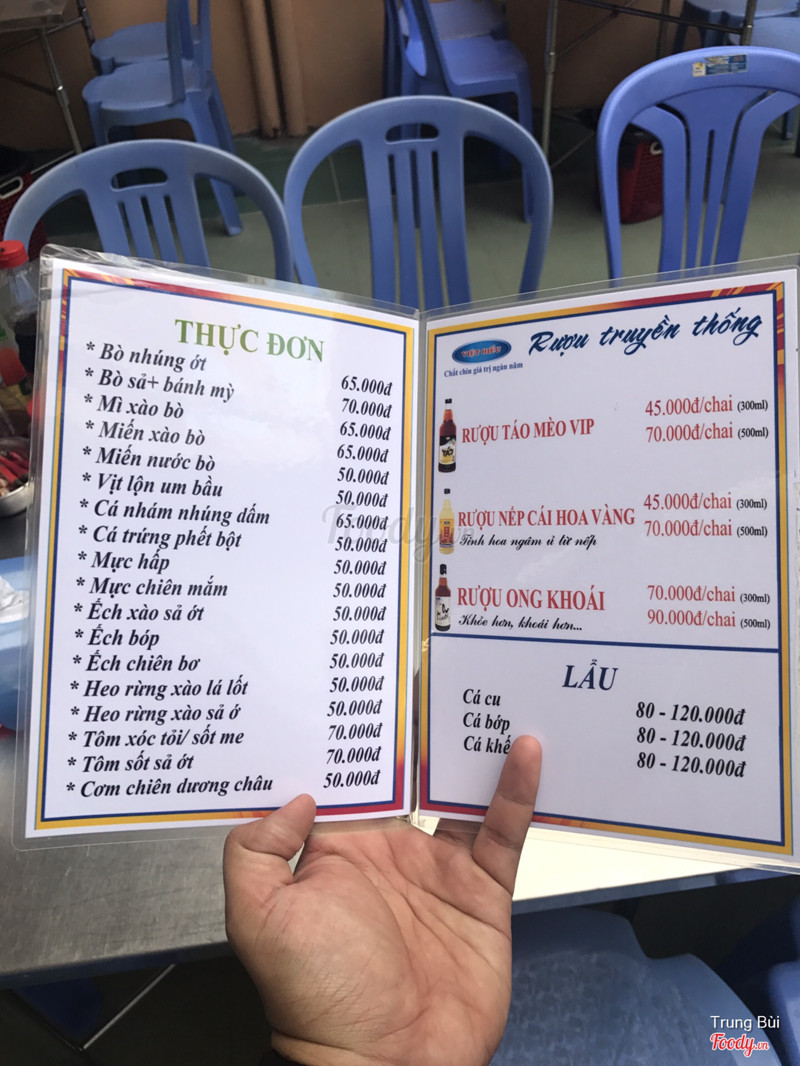 THỰC ĐƠN
* Bò nhúng ớt 65.000đ
* Bò sả+ bánh mỳ 70.000đ
* Mì xào bò 65.000đ
* Miến xào bò 65.000đ
* Miến nước bò 50.000đ
* Vịt lộn um bầu 50.000đ
* Cá nhám nhúng dấm 65.000đ
* Cá trứng phết bột 50.000đ
* Mực hấp 50.000đ
* Mực chiên mắm 50.000đ
* Ếch xào sả ớt 50.000đ
* Ếch bóp 50.000đ
* Ếch chiên bơ 50.000đ
* Heo rừng xào lá lốt 50.000đ
* Heo rừng xào sả ớ 50.000đ
* Tôm xóc tỏi/ sốt me 70.000đ
* Tôm sốt sả ớt 70.000đ
* Cơm chiên dương châu 50.000đ
Rượu truyền thống
Chất chín giá trị ngàn năm
RƯỢU TÁO MÈO VIP 45.000đ/chai (300ml)
70.000đ/chai (500ml)
RƯỢU NẾP CÁI HOA VÀNG 45.000đ/chai (300ml)
Tinh hoa ngâm ủ từ nếp 70.000đ/chai (500ml)
RƯỢU ONG KHOÁI 70.000đ/chai (300ml)
Khỏe hơn, khoái hơn... 90.000đ/chai (500ml)
LẨU
Cá cu 80 - 120.000đ
Cá bớp 80 - 120.000đ
Cá khế 80 - 120.000đ
Foody.vn
Trung Bùi
Foody.vn